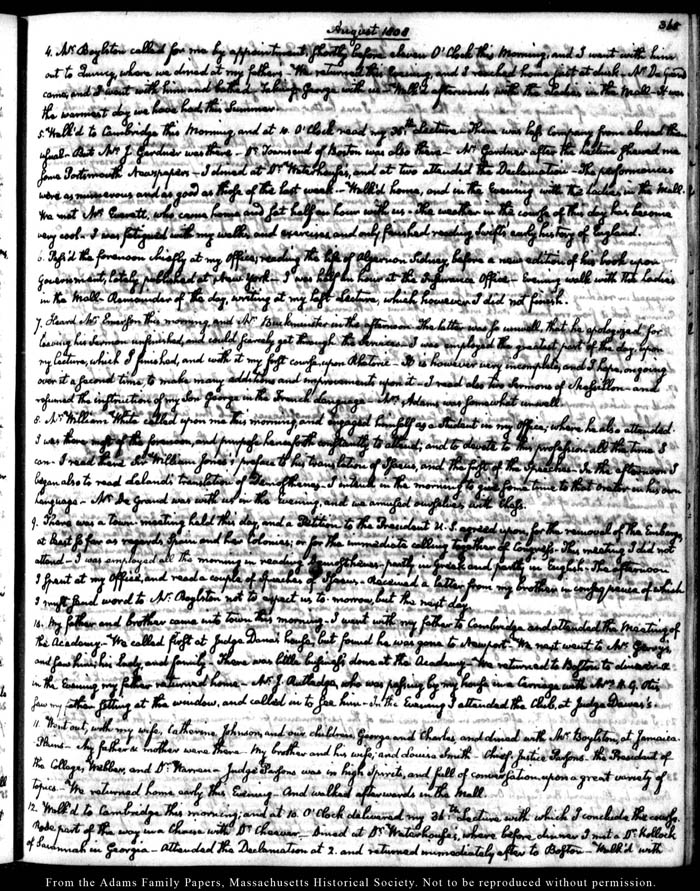 August 1808
365
4. Mr. Boylston called for me by appointment, shortly before eleven O'Clock this Morning, and I went with him
out to Quincy, where we dined at my fathers— We returned this Evening, and I reached home just at dusk— Mr De Grand
came, and I went with him and bathed— Taking George with us— Walk'd afterwards with the Ladies in the Mall— It was
the warmest day we have had this Summer.
5. Walk'd to Cambridge this Morning, and at 10. O'Clock read my 35th Lecture— There was less Company from abroad than
usual— But Mr. J. Gardner was there— Dr. Townsend of Boston was also there— Mr Gardner after the Lecture shewed me
some Portsmouth Newspapers— I dined at Dr Waterhouse's, and at two attended the Declamation— The performances
were as numerous and as good as those of the last week— Walk'd home, and in the Evening with the Ladies in the Mall.
We met Mrs. Everett, who came home and sat half an hour with us— The weather in the course of this day has become
very cool— I was fatigued with my walks, and exercises, and only finished reading Swift's early history of England.
6. Pass'd the forenoon chiefly at my Office, reading the life of Algernon Sidney, before a new edition of his book upon
Government, lately published at New York— I was half an hour at the Insurance Office— Evening walk with the Ladies
in the Mall— Remainder of the day, writing at my last Lecture, which however I did not finish.
7. Heard Mr Emerson this morning, and Mr Buckminster in the afternoon. The latter was so unwell, that he apologized for
leaving his Sermon unfinished, and could scarcely get through the Services— I was employed the greatest part of the day, upon
my Lecture, which I finished, and with it my first course upon Rhetoric— It is however very incomplete, and I hope, on going
over it a second time, to make many additions and improvements upon it— I read also two Sermons of Massillon— and
resumed the instruction of my Son George in the French Language— Mrs. Adams was somewhat unwell.
8. Mr William White called upon me this morning, and engaged himself as a Student in my Office, where he also attended.
I was there most of the forenoon, and purpose henceforth constantly to attend; and to devote to this profession all the time I
can— I read there Sir William Jones's preface to his translation of Isaeus, and the first of the Speeches— In the afternoon I
began also to read Leland's translation of Demosthenes— I intend in the morning to give some time to that Orator in his own
language— Mr. De Grand was with us in the Evening, and we amused ourselves with Chess.
9. There was a town-meeting held this day, and a Petition to the President U.S. agreed upon, for the removal of the Embargo,
at least so far as regards Spain and her Colonies; or for the immediate calling together of Congress— This meeting I did not
attend— I was employed all the morning in reading Demosthenes— partly in Greek and partly in English. The afternoon
I spent at my Office, and read a couple of Speeches of Isaeus— Received a letter from my brother in consequence of which
I must send word to Mr. Boylston not to expect us to-morrow, but the next day.
10. My father and brother came into town this morning— I went with my father to Cambridge and attended the Meeting of
the Academy— We called first at Judge Dana's house, but found he was gone to Newport— We next went to Mr. Gerry's
and saw him, his lady, and family— There was little business done at the Academy— We returned to Boston to dinner— &
in the Evening my father returned home— Mr. J. Rutledge, who was passing by my house in a Carriage with Mrs H. G. Otis
saw my father sitting at the window, and called in to see him— In the Evening I attended the Club, at Judge Dawes's.
11. Went out, with my wife, Catherine Johnson, and our children George and Charles, and dined with Mr Boylston, at Jamaica
Plains— My father & mother were there— My brother and his wife, and Louisa Smith— Chief Justice Parsons— the President of
the College, Webber, and Dr. Warren— Judge Parsons was in high spirits, and full of conversation upon a great variety of
topics— We returned home early this Evening— And walked afterwards in the Mall.
12. Walk'd to Cambridge this morning; and at 10. O'Clock delivered my 36th Lecture with which I conclude the course.
Rode part of the way in a Chaise with Dr Cheaver— Dined at Dr. Waterhouse's, where before dinner I met a Dr. Kollock
of Savannah in Georgia— Attended the Declamation at 2. and returned immediately after to Boston— Walk'd with
From the Adams Family Papers, Massachusetts Historical Society. Not to be reproduced without permission.